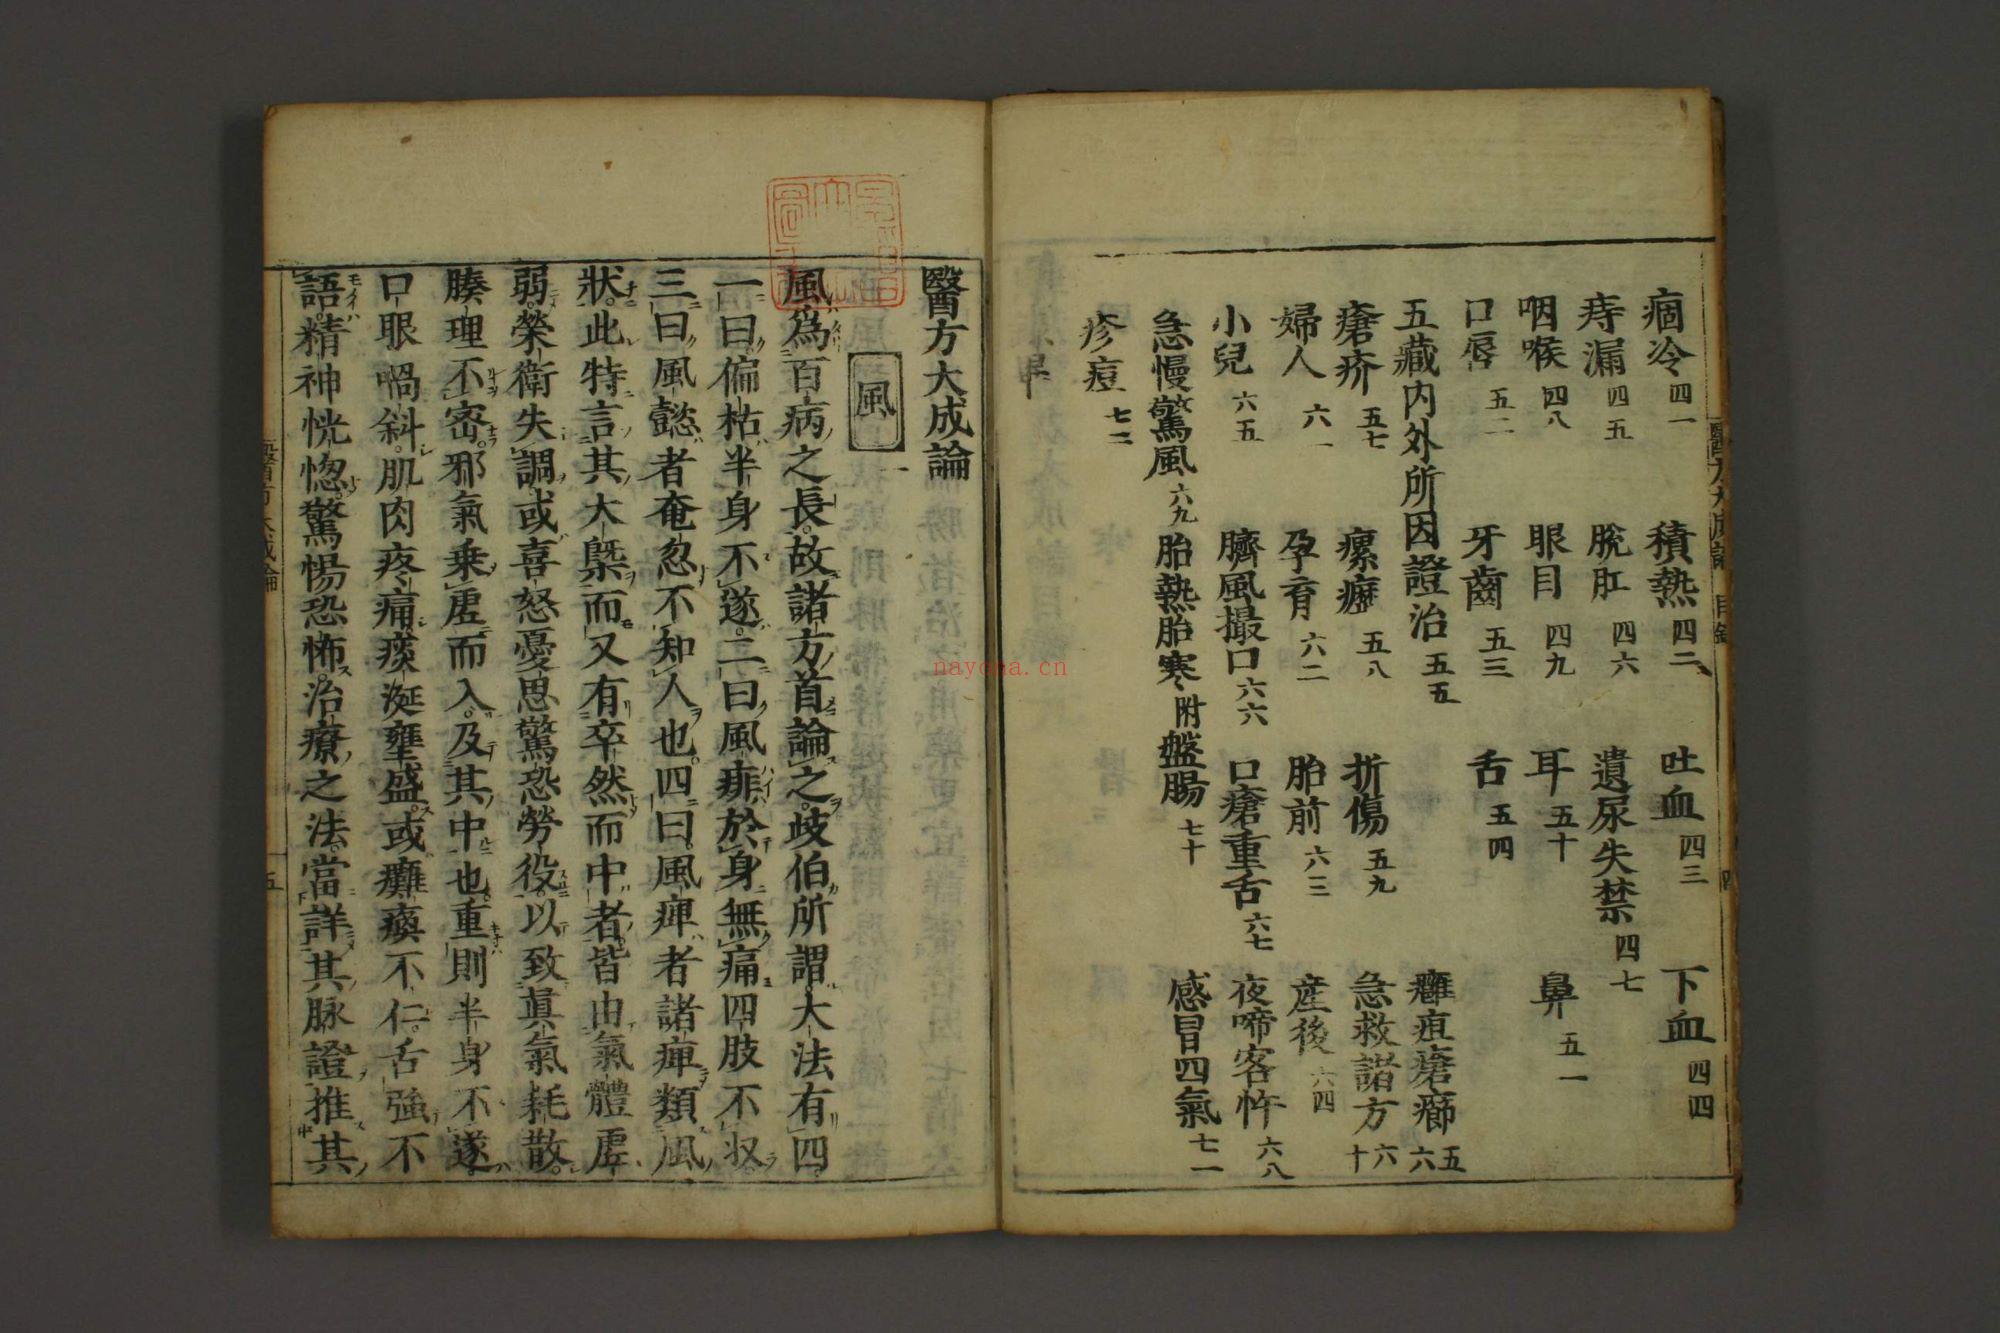 痼冷四一 積熱四二 吐血四三 下血四四
痔漏四五 脫肛四六 遺尿失禁四七
咽喉四八 眼目四九 耳五十 鼻五一
口唇五二 牙齒五三 舌五四
五藏内外所因證治五五 癰疽瘡癤五六
瘡疥五七 瘰癧五八 折傷五九 急救諸方六十
婦人六一 孕育六二 胎前六三 産後六四
小兒六五 臍風撮口六六 口瘡重舌六七 夜啼客忤六八
急慢驚風六九 胎熱胎寒附盤腸七十 感冒四氣七一
疹痘七二
醫方大成論
風
風為百病之長故諸方首論之岐伯所謂大法有四
一曰偏枯半身不遂二曰風痱於身無痛四肢不収
三曰風懿者奄忽不知人也四曰風痺者諸痺類風
狀此特言其大槩而又有卒然而中者皆由氣體虛
弱榮衛失調或喜怒憂思驚恐勞役以致眞氣耗散
腠理不密邪氣乗虛而入及其中也重則半身不遂
口眼喎斜肌肉疼痛痰涎壅盛或癱瘓不仁舌強不
語精神恍惚驚惕恐怖治療之法當詳其脉證推其
醫方大成論
五
nayona.cn